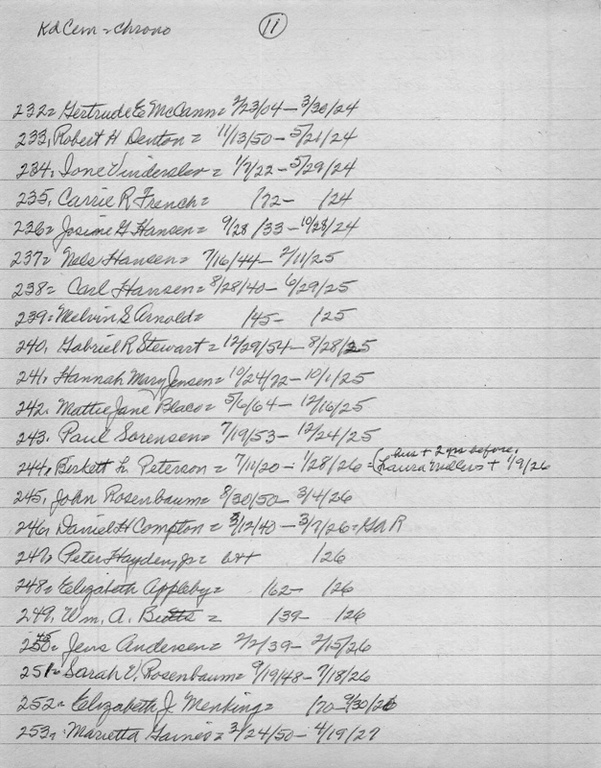 Kd Cem = chrono
11
232 = Gertrude E McCann = 2/23/04 - 3/30/24
233, Robert H Denton = 11/13/50 - 5/21/24
234, Ione Vinderslev = 1/7/22 - 5/29/24
235, Carrie R French = /72 - /24
236 = Josine G Hansen = 9/28/33 - 10/28/24
237 = Nels Hansen = 7/16/44 - 2/11/25
238 = Carl Hansen = 8/28/40 - 6/29/25
239 = Melvin S Arnold = /45 - /25
240, Gabriel R Stewart = 12/29/54 - 8/28/25
241, Hannah Mary Jensen = 10/24/72 - 10/1/25
242, Mattie Jane Blaco = 5/6/64 - 12/16/25
243, Paul Sorensen = 7/19/53 - 12/24/25
hus + 2 yrs before,
244, Birkett L. Peterson = 7/11/20 - 1/28/26 = (Laura + 1/9/26
245, John Rosenbaum = 8/30/50 - 3/4/26
246, Daniel H Compton = 3/12/40 - 3/7/26 = GAR
247, Peter Hayden, Jr = /26
248 = Elizabeth Appleby = /62 - /26
249, Wm. A. Butts = /39 - /26
250 = Jens Andersen = 2/2/39 - 2/15/26
251 = Sarah V. Rosenbaum = 9/19/48 - 7/18/26
252 = Elizabeth J. Menking = /70 - 9/30/26
253, Marietta Gaines = 3/24/50 - 4/19/27